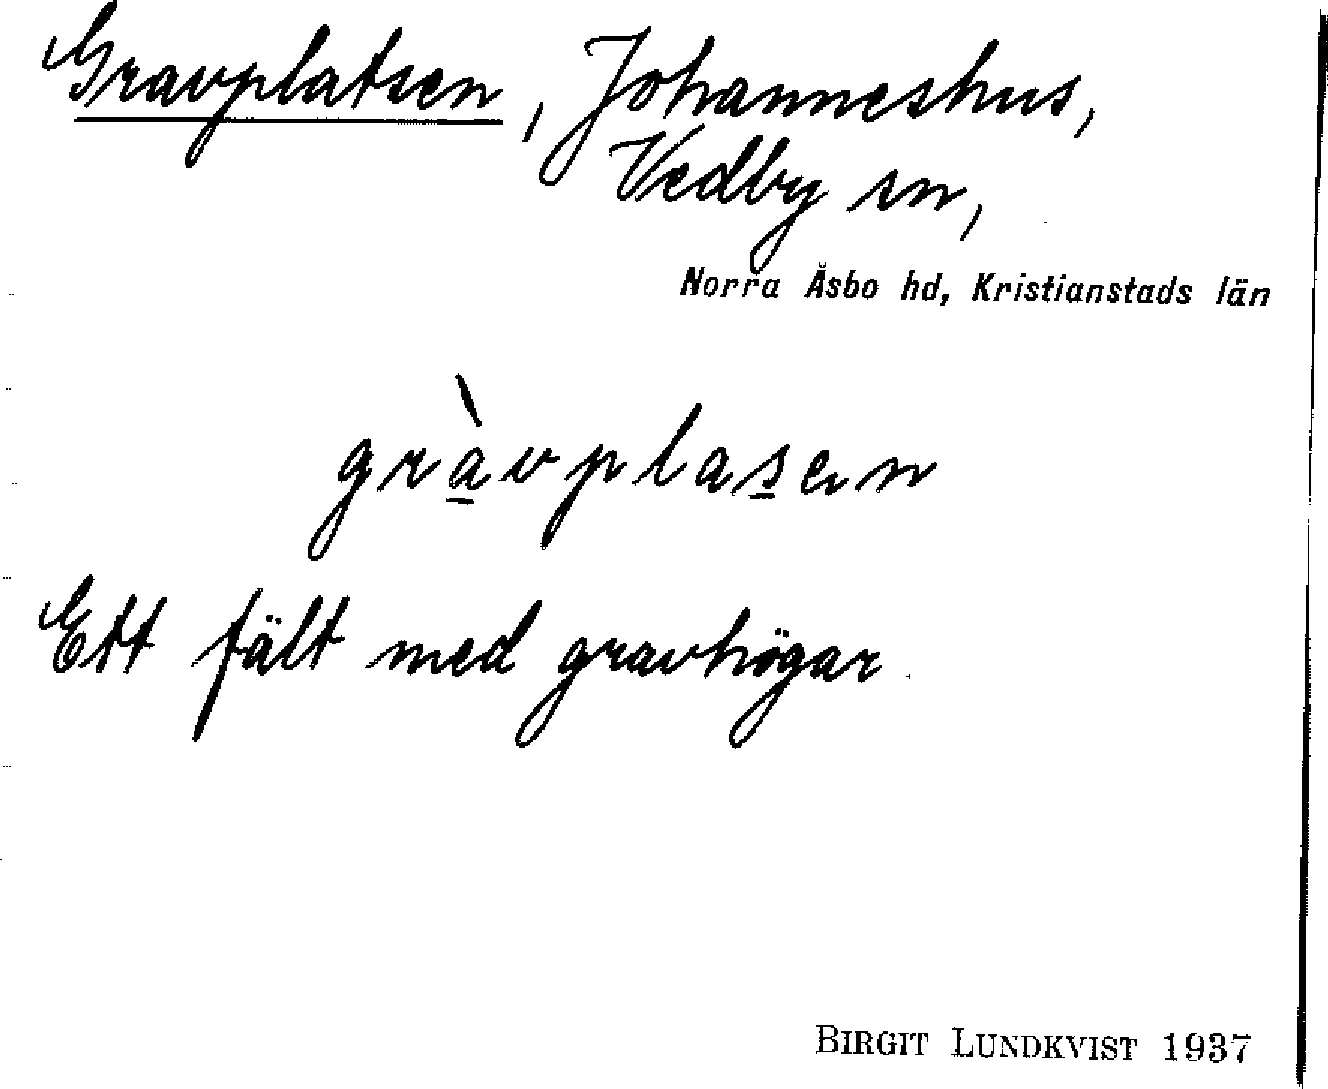 Gravplatsen, Johanneshus,
Vedby sn,
Norra Åsbo hd, Kristianstads län
gràvplasen
Ett fält med gravhögar.
BIRGIT LUNDKVIST 1937